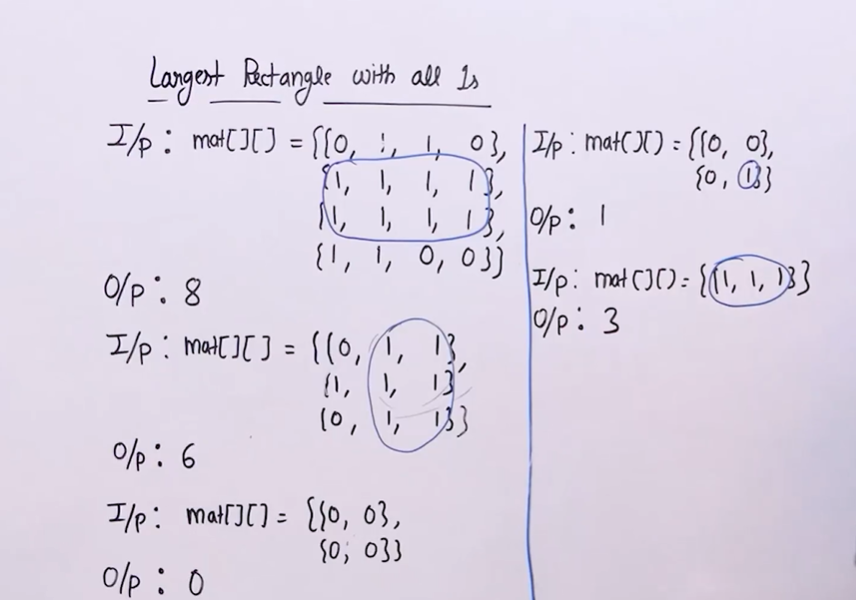 Largest Rectangle with all 1s
I/p: mat[][] = {{0, 1, 1, 0},
{1, 1, 1, 1},
{1, 1, 1, 1},
{1, 1, 0, 0}}
O/p: 8
I/p: mat[][] = {{0, 1, 1},
{1, 1, 1}
{0, 1, 1}}
O/p: 6
I/p: mat[][] = {{0, 0},
{0, 0}}
O/p: 0
I/p: mat[][] = {{0, 0},
{0, 1}}
O/p: 1
I/p: mat[][] = {{1, 1, 1}}
O/p: 3